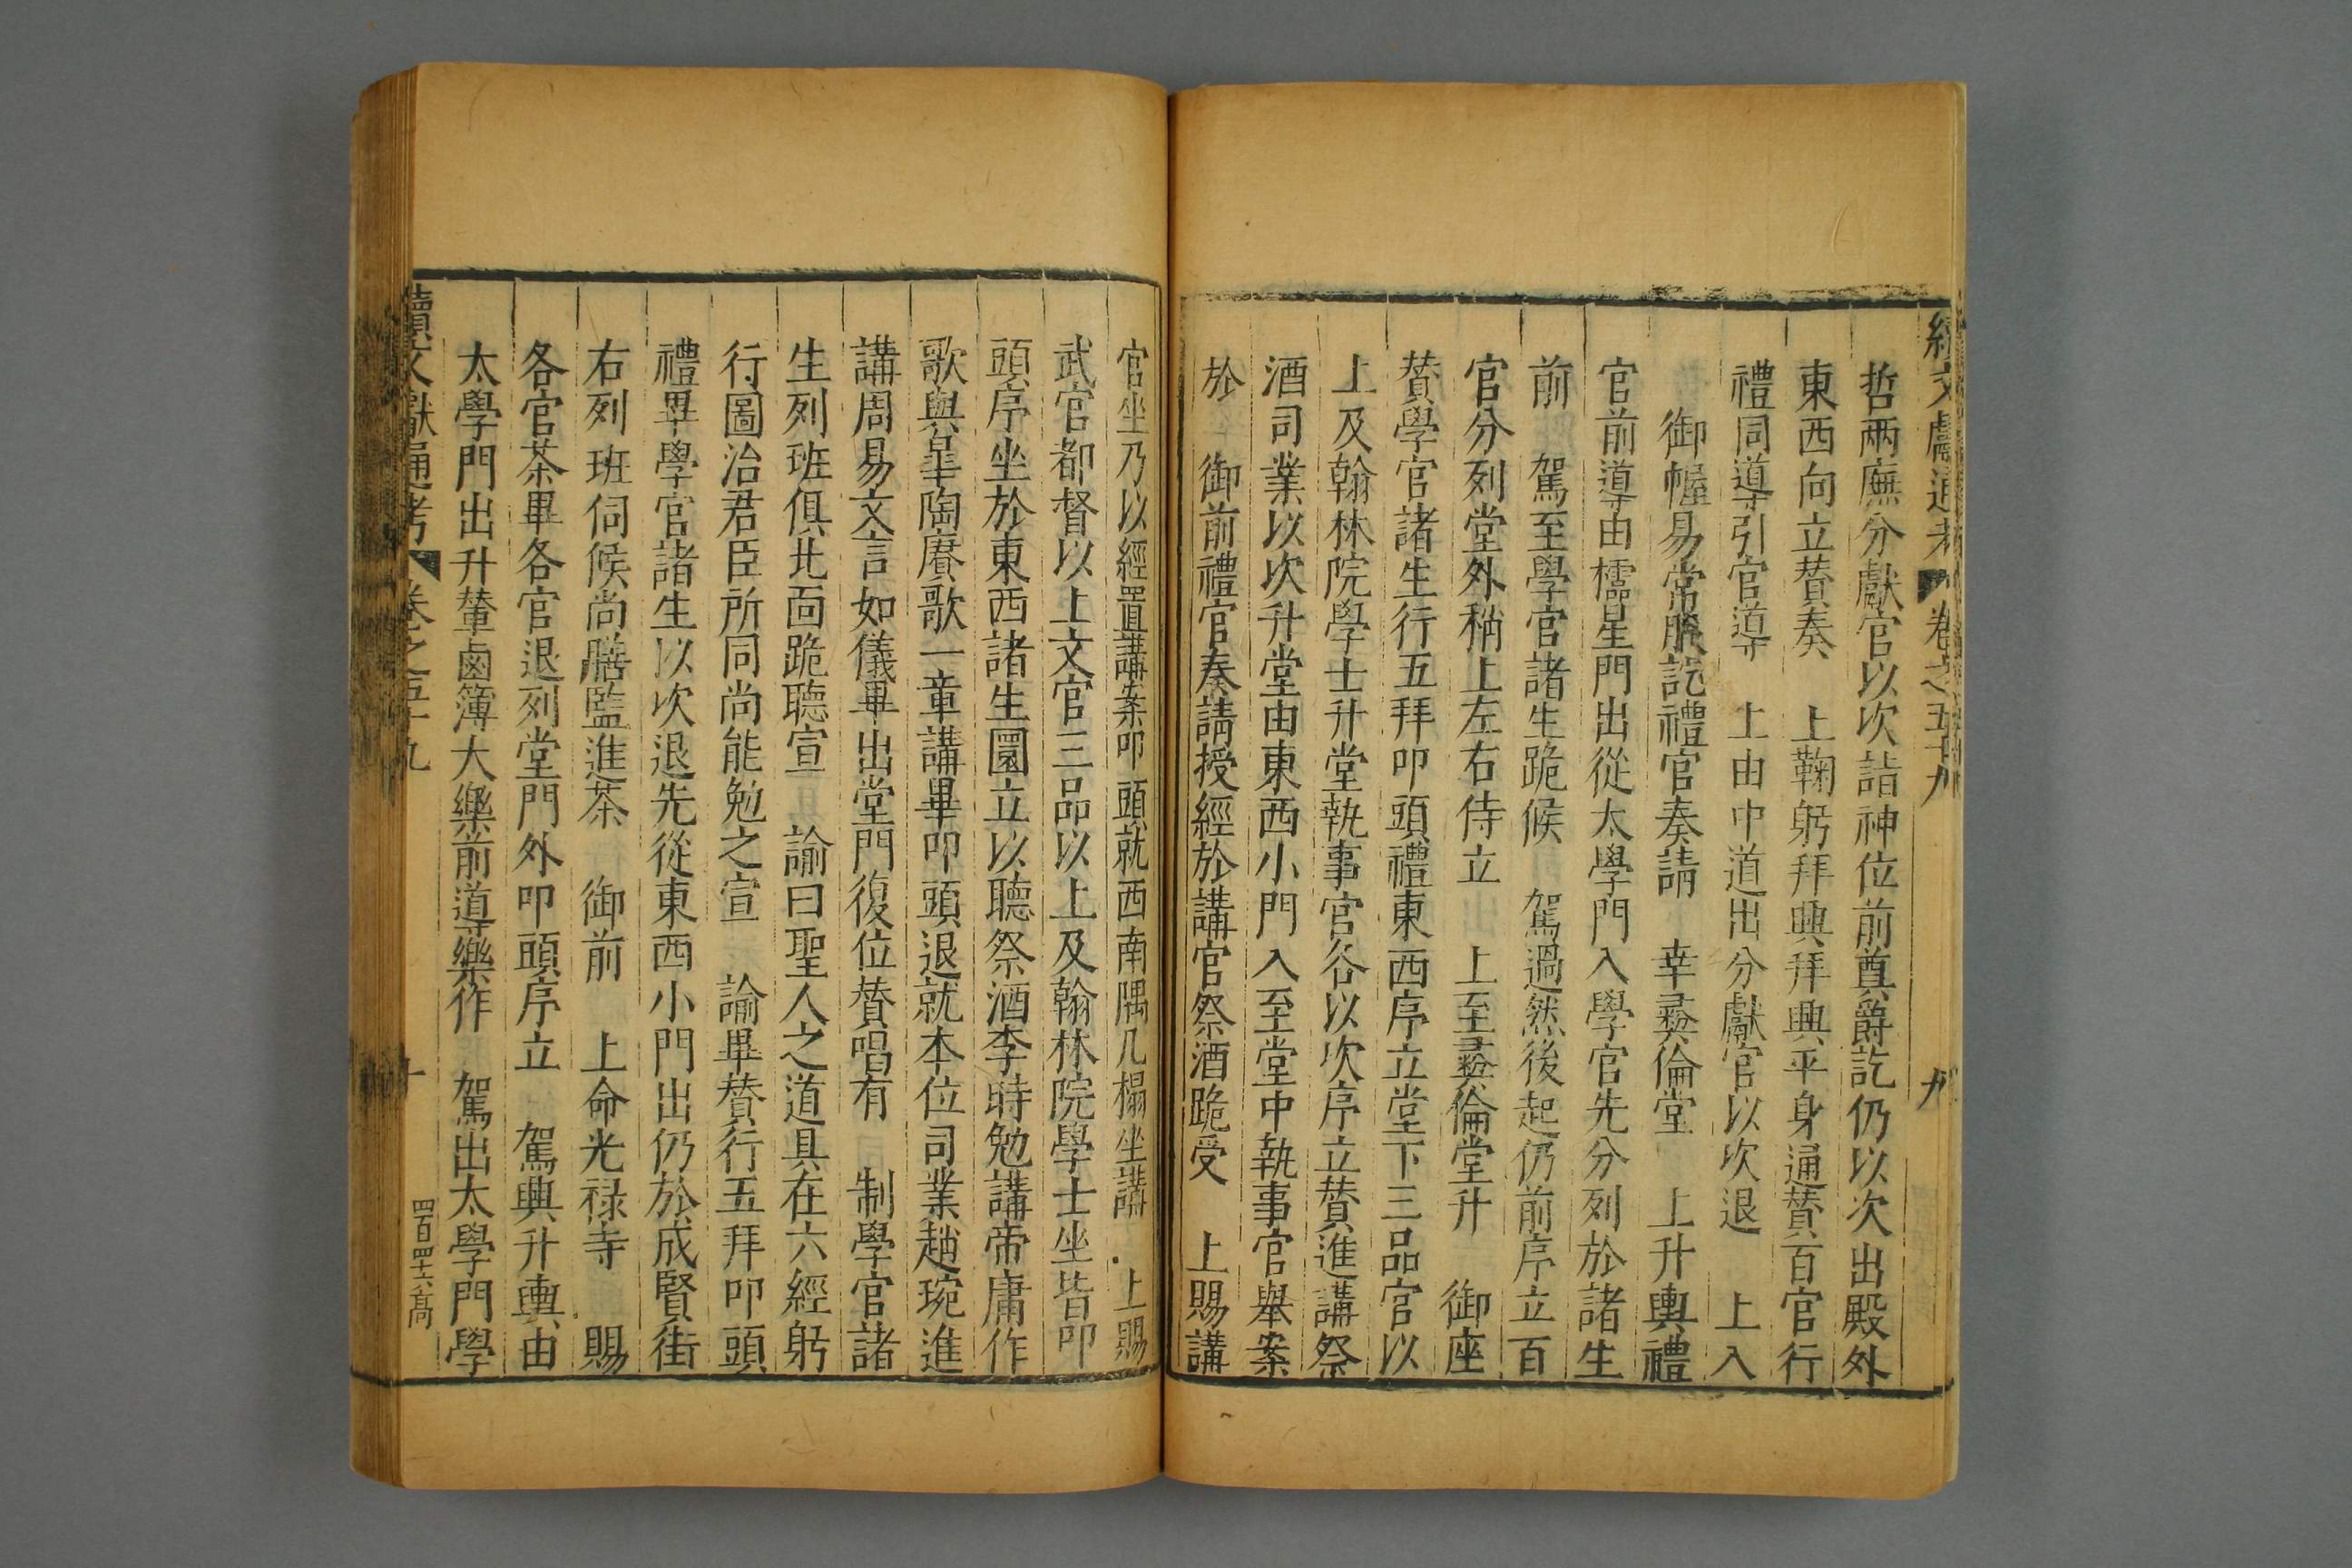 續文獻通考 卷之五十九 九
哲兩廡分獻官以次詣神位前奠爵訖仍以次出殿外
東西向立贊奏 上鞠躬拜興拜興平身通贊百官行
禮同導引官導 上由中道出分獻官以次退 上入
御幄易常服訖禮官奏請 幸彝倫堂 上升輿禮
官前導由櫺星門出從太學門入學官先分列於諸生
前 駕至學官諸生跪候 駕過然後起仍前序立百
官分列堂外稍上左右侍立 上至彝倫堂升 御座
贊學官諸生行五拜叩頭禮東西序立堂下三品官以
上及翰林院學士升堂執事官各以次序立贊進講祭
酒司業以次升堂由東西小門入至堂中執事官舉案
於 御前禮官奏請授經於講官祭酒跪受 上賜講
官坐乃以經置講案叩頭就西南隅几榻坐講 上賜
武官都督以上文官三品以上及翰林院學士坐皆叩
頭序坐於東西諸生圜立以聽祭酒李時勉講帝庸作
歌與皐陶賡歌一章講畢叩頭退就本位司業趙琬進
講周易文言如儀畢出堂門復位贊唱有 制學官諸
生列班俱北面跪聽宣 諭曰聖人之道具在六經躬
行圖治君臣所同尚能勉之宣 諭畢贊行五拜叩頭
禮畢學官諸生以次退先從東西小門出仍於成賢街
右列班伺候尚膳監進茶 御前 上命光祿寺 賜
各官茶畢各官退列堂門外叩頭序立 駕興升輿由
太學門出升輦鹵簿大樂前導樂作 駕出太學門學
續文獻通考 卷之五十九 十 四百四十六高